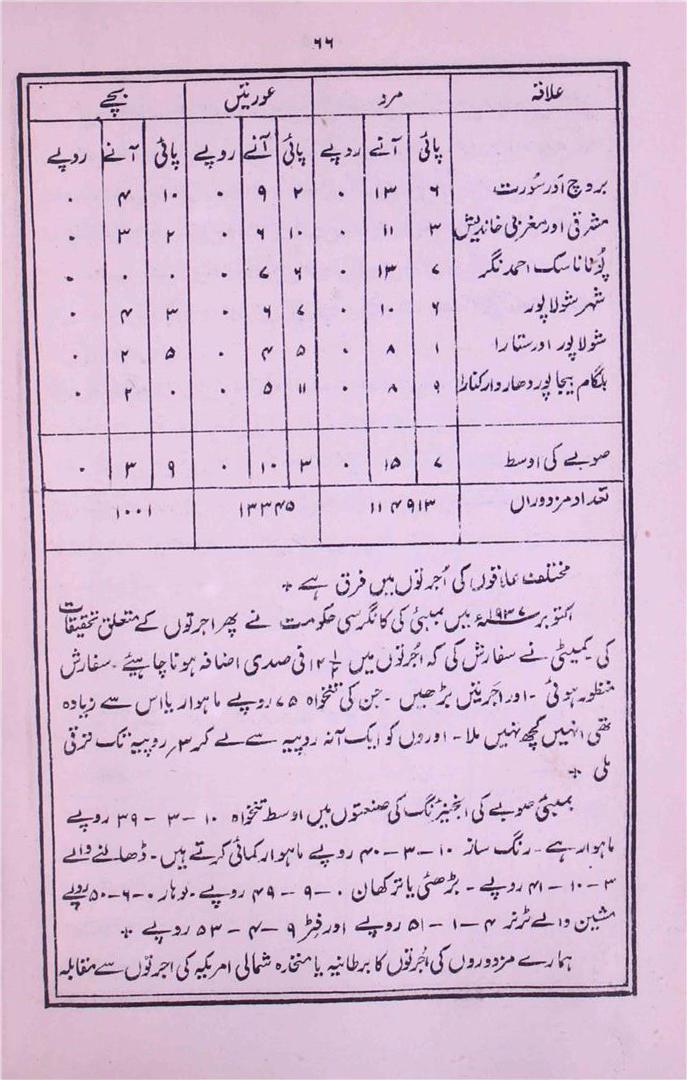 ۶۶
علاقہ مرد عورتیں بچے
پائی آنے روپے پائی آنے روپے پائی آنے روپے
بروچ اور سُورت ۶ ۱۳ ۰ ۲ ۹ ۰ ۱۰ ۴ ۰
مشرقی اور مغربی خاندیش ۳ ۱۱ ۰ ۱۰ ۶ ۰ ۲ ۳ ۰
پُونا ناسک احمد نگر ۷ ۱۳ ۰ ۶ ۷ ۰ ۰ ۰ ۰
شہر شولاپور ۶ ۱۰ ۰ ۷ ۶ ۰ ۳ ۴ ۰
شولاپور اور ستارا ۱ ۸ ۰ ۵ ۴ ۰ ۵ ۲ ۰
بلگام بیجاپور دھاروار کنارا ۹ ۸ ۰ ۱۱ ۵ ۰ ۰ ۲ ۰
صوبے کی اوسط ۷ ۱۵ ۰ ۳ ۱۰ ۰ ۹ ۳ ۰
تعداد مزدوراں ۱۱۴۹۱۳ ۱۳۳۴۵ ۱۰۰۱
مختلف علاقوں کی اُجرتوں میں فرق ہے ٭
اکتوبر ۱۹۳۷ء میں بمبئی کی کانگرسی حکومت نے پھر اجرتوں کے متعلق تحقیقات
کی کمیٹی نے سفارش کی کہ اُجرتوں میں ۱۴½ فی صدی اضافہ ہونا چاہیئے۔ سفارش
منظور ہوئی۔ اور اجرتیں بڑھیں۔ جن کی تنخواہ ۷۵ روپے ماہوار یا اس سے زیادہ
تھی اُنہیں کچھ نہیں ملا۔ اوروں کو ایک آنہ روپیہ سے لے کر ۳؍ روپیہ تک ترقی
ملی ٭
بمبئی صوبے کی انجینئرنگ کی صنعتوں میں اوسط تنخواہ ۱۰ – ۳ – ۳۹ روپے
ماہوار ہے۔ رنگ ساز ۱۰ – ۳ – ۴۰ روپے ماہوار کمائی کرتے ہیں۔ ڈھالنے والے
۳ – ۱۰ – ۴۱ روپے۔ بڑھئی یا ترکھان ۰ – ۹ – ۴۹ روپے۔ لوہار ۰ – ۶ – ۵۰ روپے
مشین والے ٹرنر ۴ – ۱ – ۵۱ روپے اور فٹر ۹ – ۴ – ۵۳ روپے ٭
ہمارے مزدوروں کی اُجرتوں کا برطانیہ یا متحدہ شمالی امریکہ کی اجرتوں سے مقابلہ